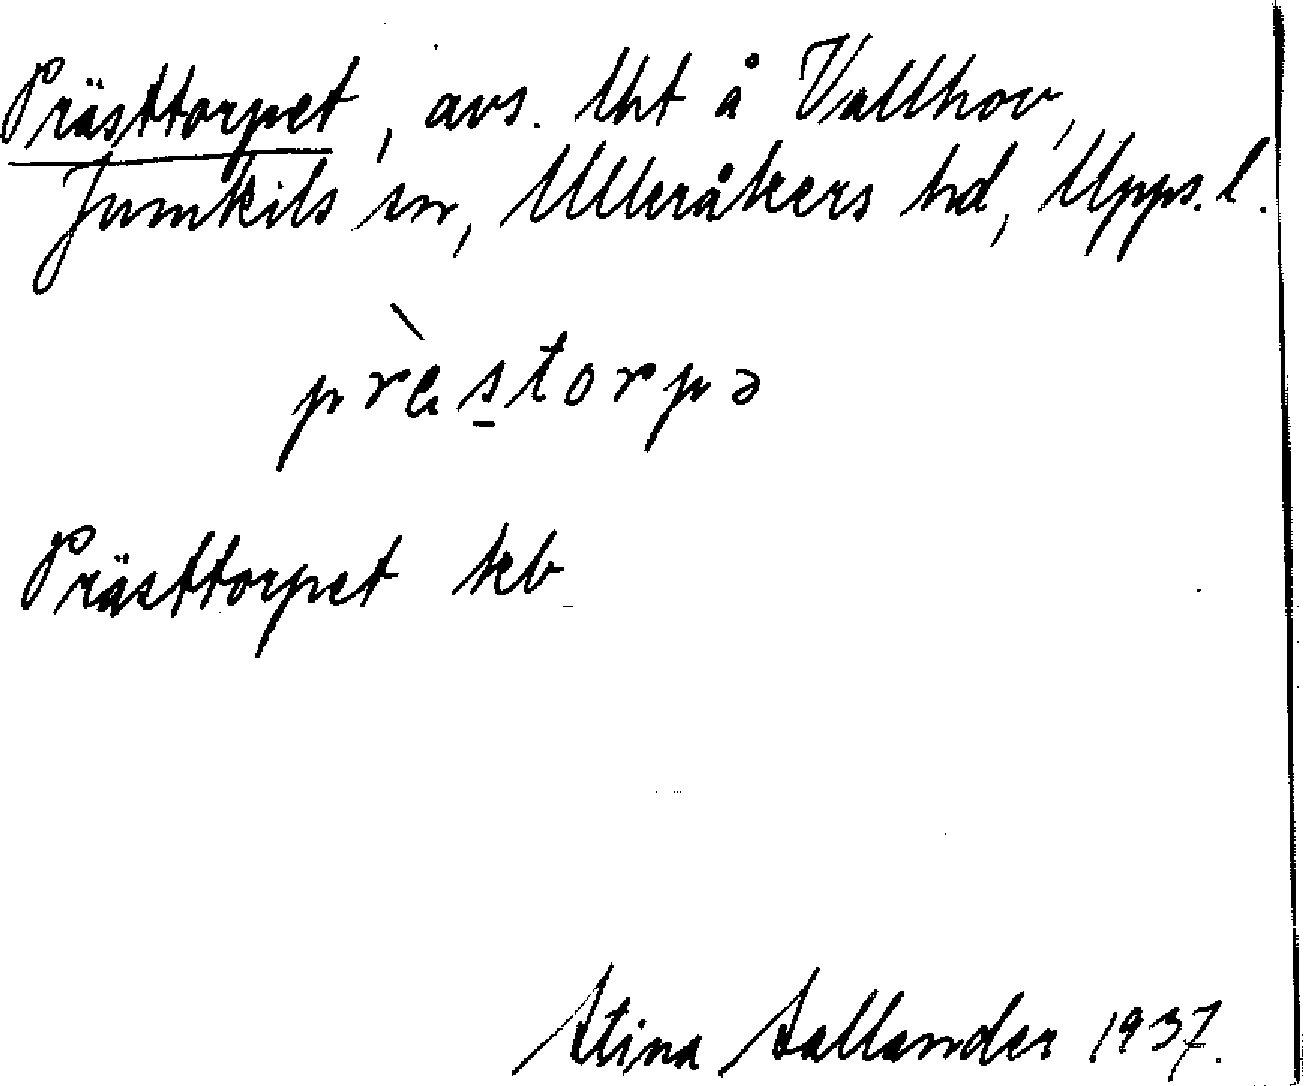 Prästtorpet, avs. lht å Vallhov,
Jumkils sn, Ulleråkers hd, Upps. l.
prè̀s̲torpə
Prästtorpet kb
Stina Sallander 1937.